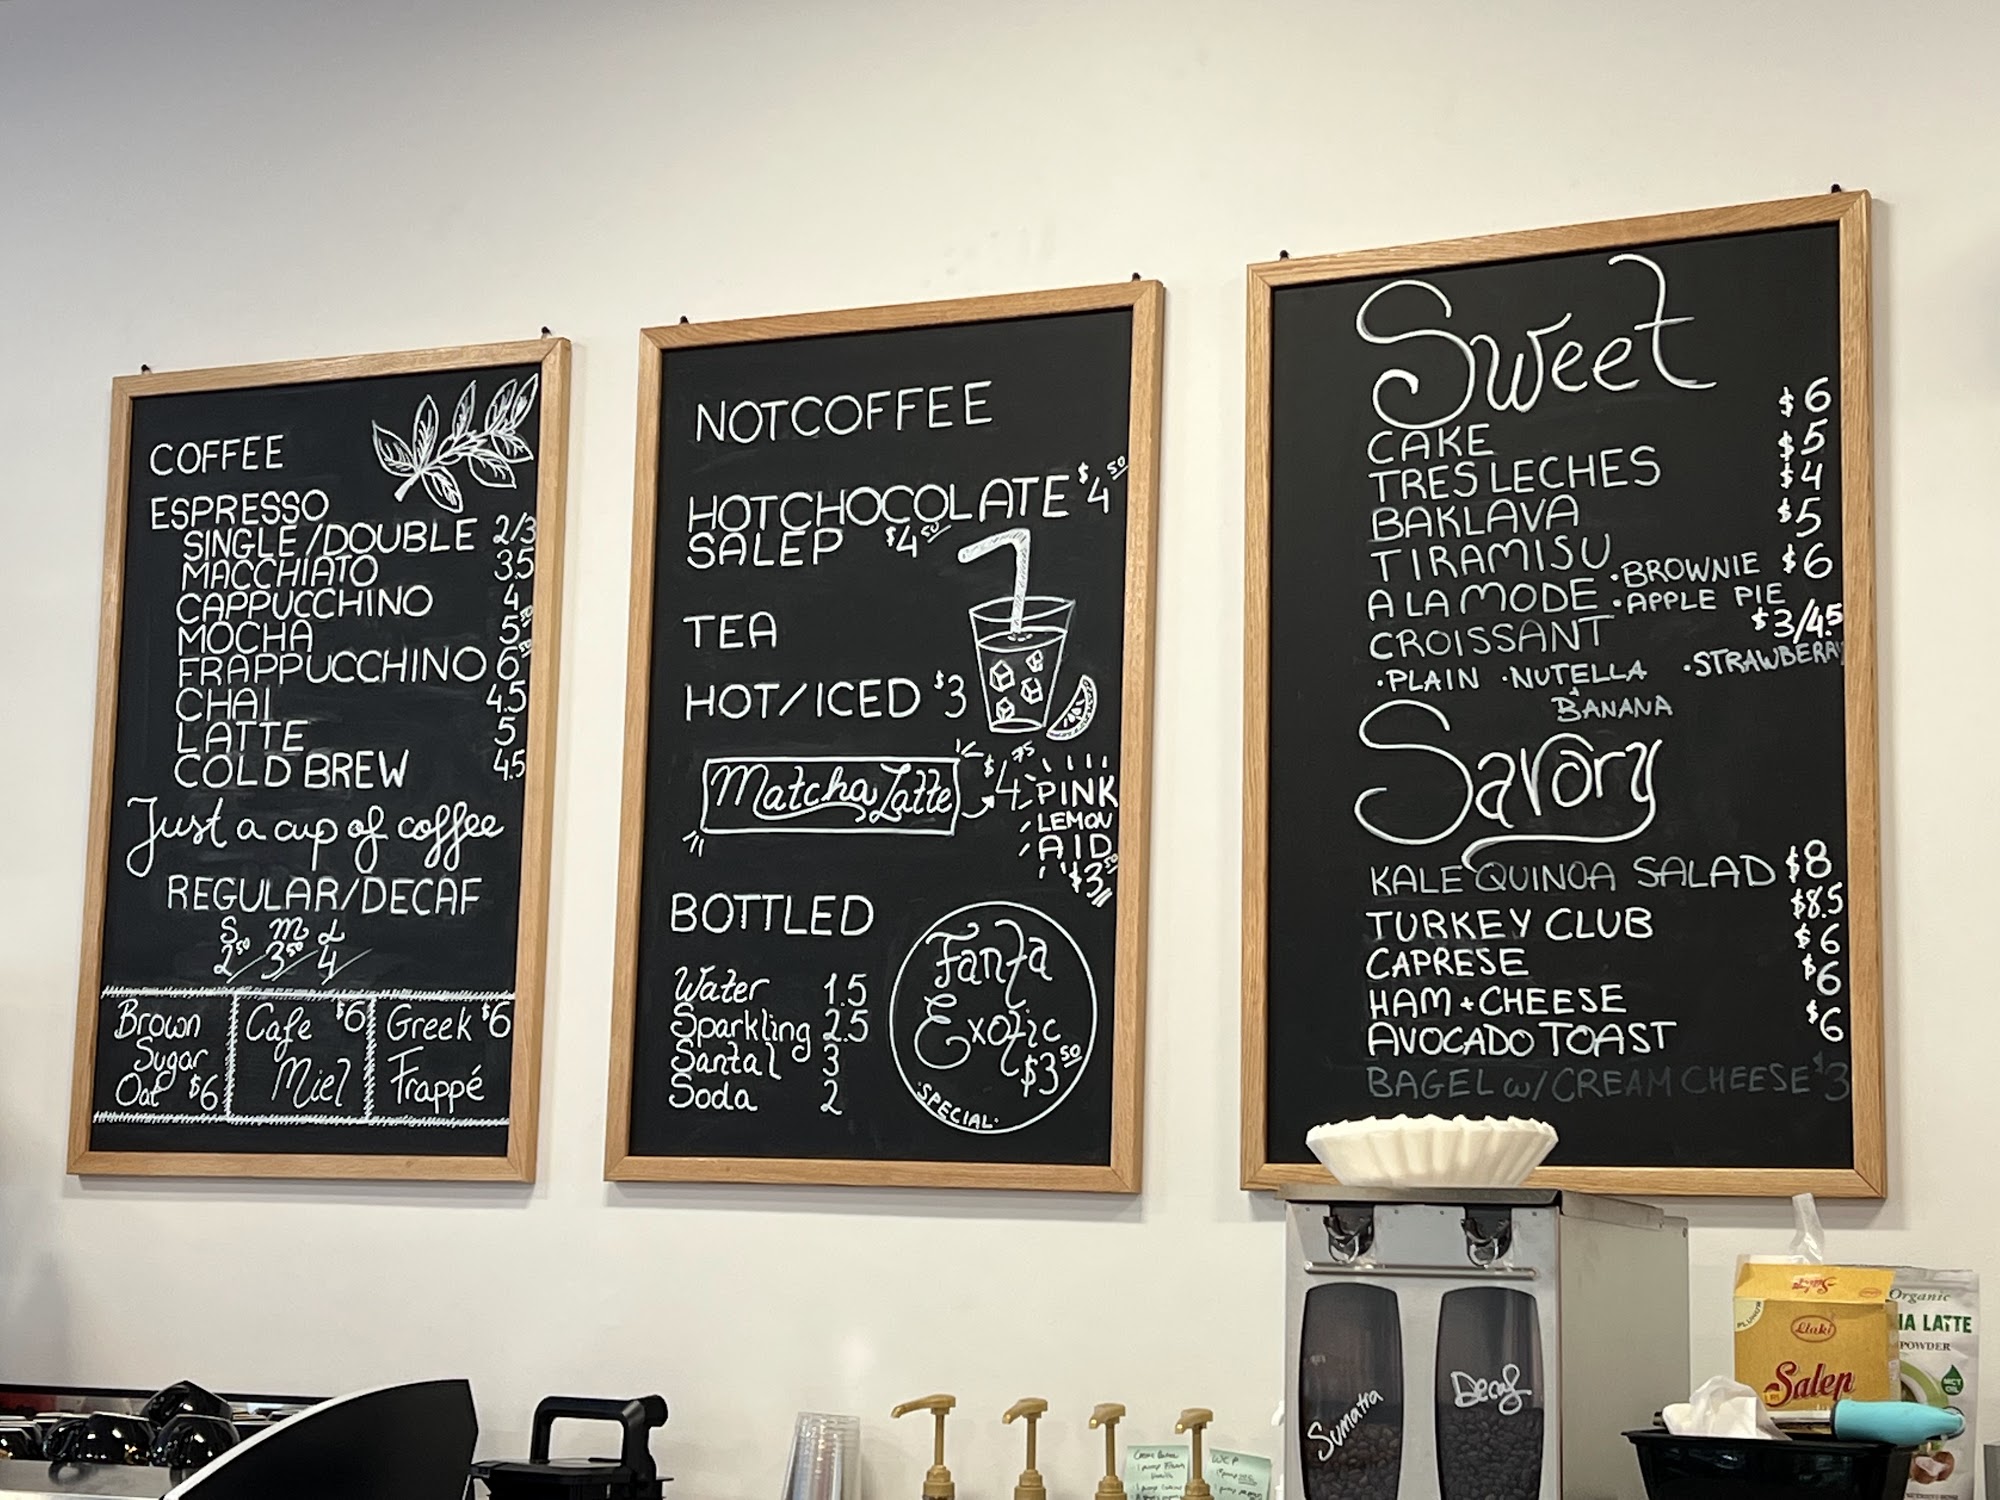 COFFEE
ESPRESSO
SINGLE/DOUBLE 2/3
MACCHIATO 3.5
CAPPUCCHINO 4
MOCHA 5.50
FRAPPUCCHINO 6.50
CHAI 4.5
LATTE 5
COLD BREW 4.5
Just a cup of coffee
REGULAR/DECAF
S M L
2.50/ 3.50/ 4/
Brown Sugar Oat $6
Cafe Miel $6
Greek Frappé $6
NOTCOFFEE
HOTCHOCOLATE $4.50
SALEP $4.50
TEA
HOT/ICED $3
Matcha Latte $4.75
PINK
LEMON
AID
$3.50
BOTTLED
Water 1.5
Sparkling 2.5
Santal 3
Soda 2
Fanta
Exotic
$3.50
·SPECIAL·
Sweet
CAKE $6
TRES LECHES $5
BAKLAVA $4
TIRAMISU $5
A LA MODE ·BROWNIE ·APPLE PIE $6
CROISSANT $3/4.5
·PLAIN ·NUTELLA + BANANA ·STRAWBERRY
Savory
KALE QUINOA SALAD $8
TURKEY CLUB $8.5
CAPRESE $6
HAM + CHEESE $6
AVOCADO TOAST $6
BAGEL w/CREAM CHEESE $3
Sumatra
Decaf
Salep
Ülaki
Salep
Organic
IA LATTE
POWDER
MCT OIL
WCP